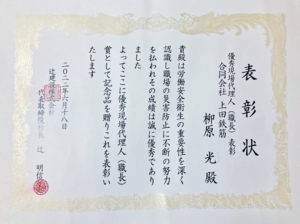 表彰状
優秀現場代理人(職長)表彰
合同会社 上田鉄筋
柳原 光 殿
貴殿は労働安全衛生の重要性を深く
認識し職場の災害防止に不断の努力
を払われその成績は誠に優秀であり
ました
よってここに優秀現場代理人(職長)
賞として記念品を贈りこれを表彰い
たします
二〇二二年六月十八日
辻建設株式会社
代表取締役社長 辻 明信